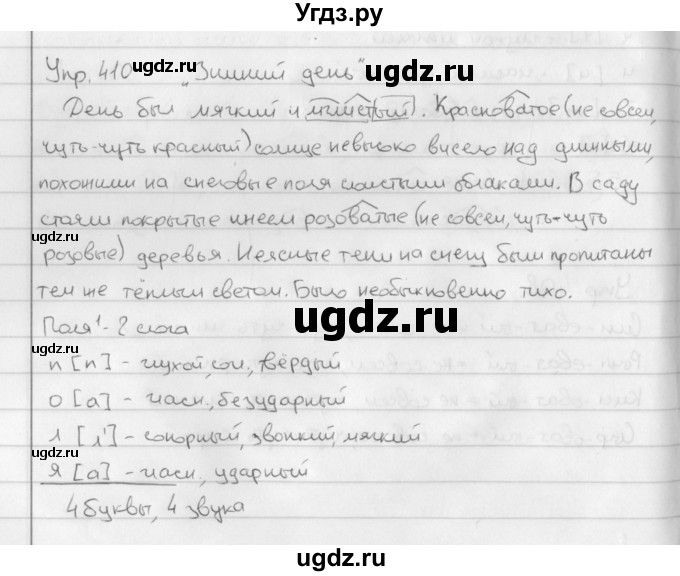 Угдз.ру
Упр. 410 „Зимний день" ugdz.ru
День был мягкий и мглистый. Красноватое (не совсем,
чуть-чуть красный) солнце невысоко висело над длинными,
похожими на снеговые поля слоистыми облаками. В саду
стояли покрытые инеем розоватые (не совсем, чуть-чуть
ugdz.ru
розовые) деревья. Неясные тени на снегу были пропитаны
тем же тёплым светом. Было необыкновенно тихо.
ugdz.ru
Поля' - 2 слога
п [п] - глухой, сог., твёрдый
о [а] - гласн., безударный
ugdz.ru
л [л'] - сонорный, звонкий, мягкий
я [а] - гласн., ударный
ugdz.ru
4 буквы, 4 звука
ugdz.ru